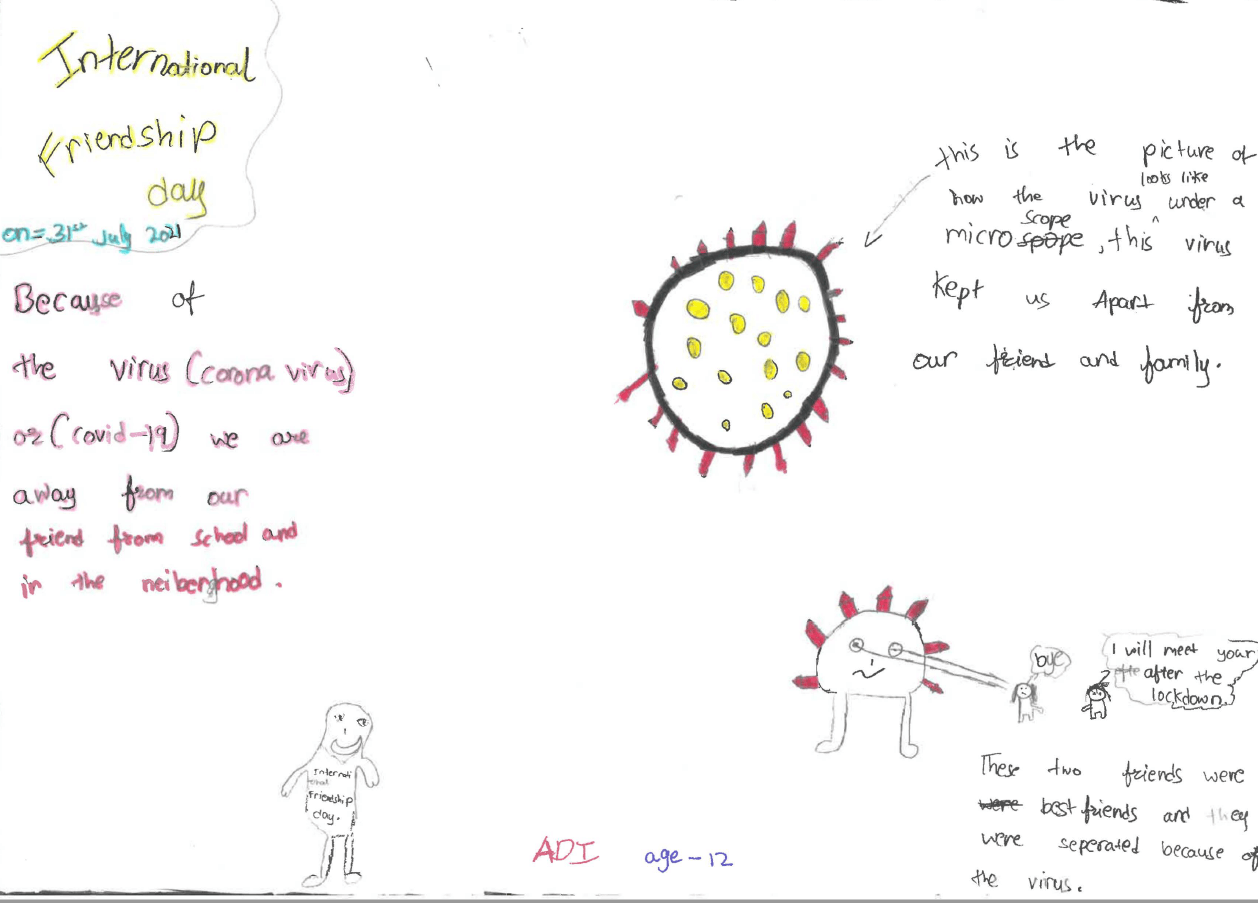 International
Friendship
day
on=31st July 2021
Because of
the virus (corona virus)
or (covid-19) we are
away from our
friend from school and
in the neiberghood.
this is the picture of
looks like
how the virus ^ under a
scope
micro spope, this virus
kept us Apart from
our friend and family.
bye
I will meet your
after the
lockdown.
Internati
onal
Friendship
day.
These two friends were
were best friends and they
were seperated because of
the virus.
ADI age-12